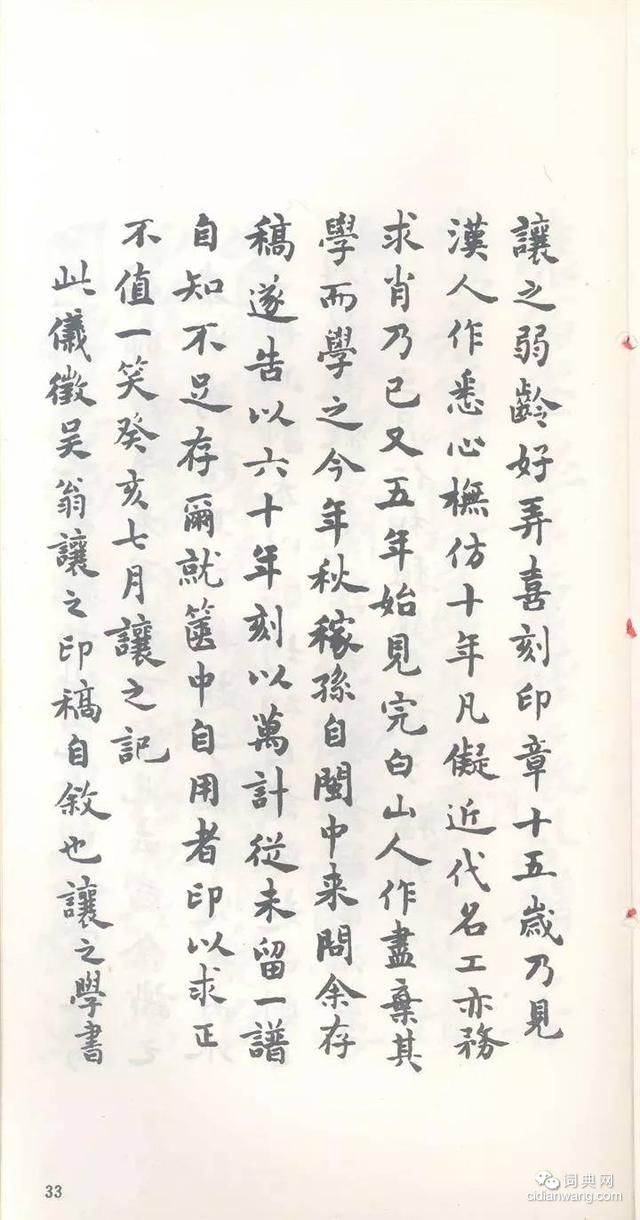 讓之弱齡好弄喜刻印章十五歲乃見
漢人作悉心橅仿十年凡儗近代名工亦務
求肖乃已又五年始見完白山人作盡棄其
學而學之今年秋稼孫自閩中来問余存
稿遂告以六十年刻以萬計從未留一譜
自知不足存爾就篋中自用者印以求正
不值一笑癸亥七月讓之記
此儀徵吴翁讓之印稿自敘也讓之學書
33
词典网
cidianwang.com